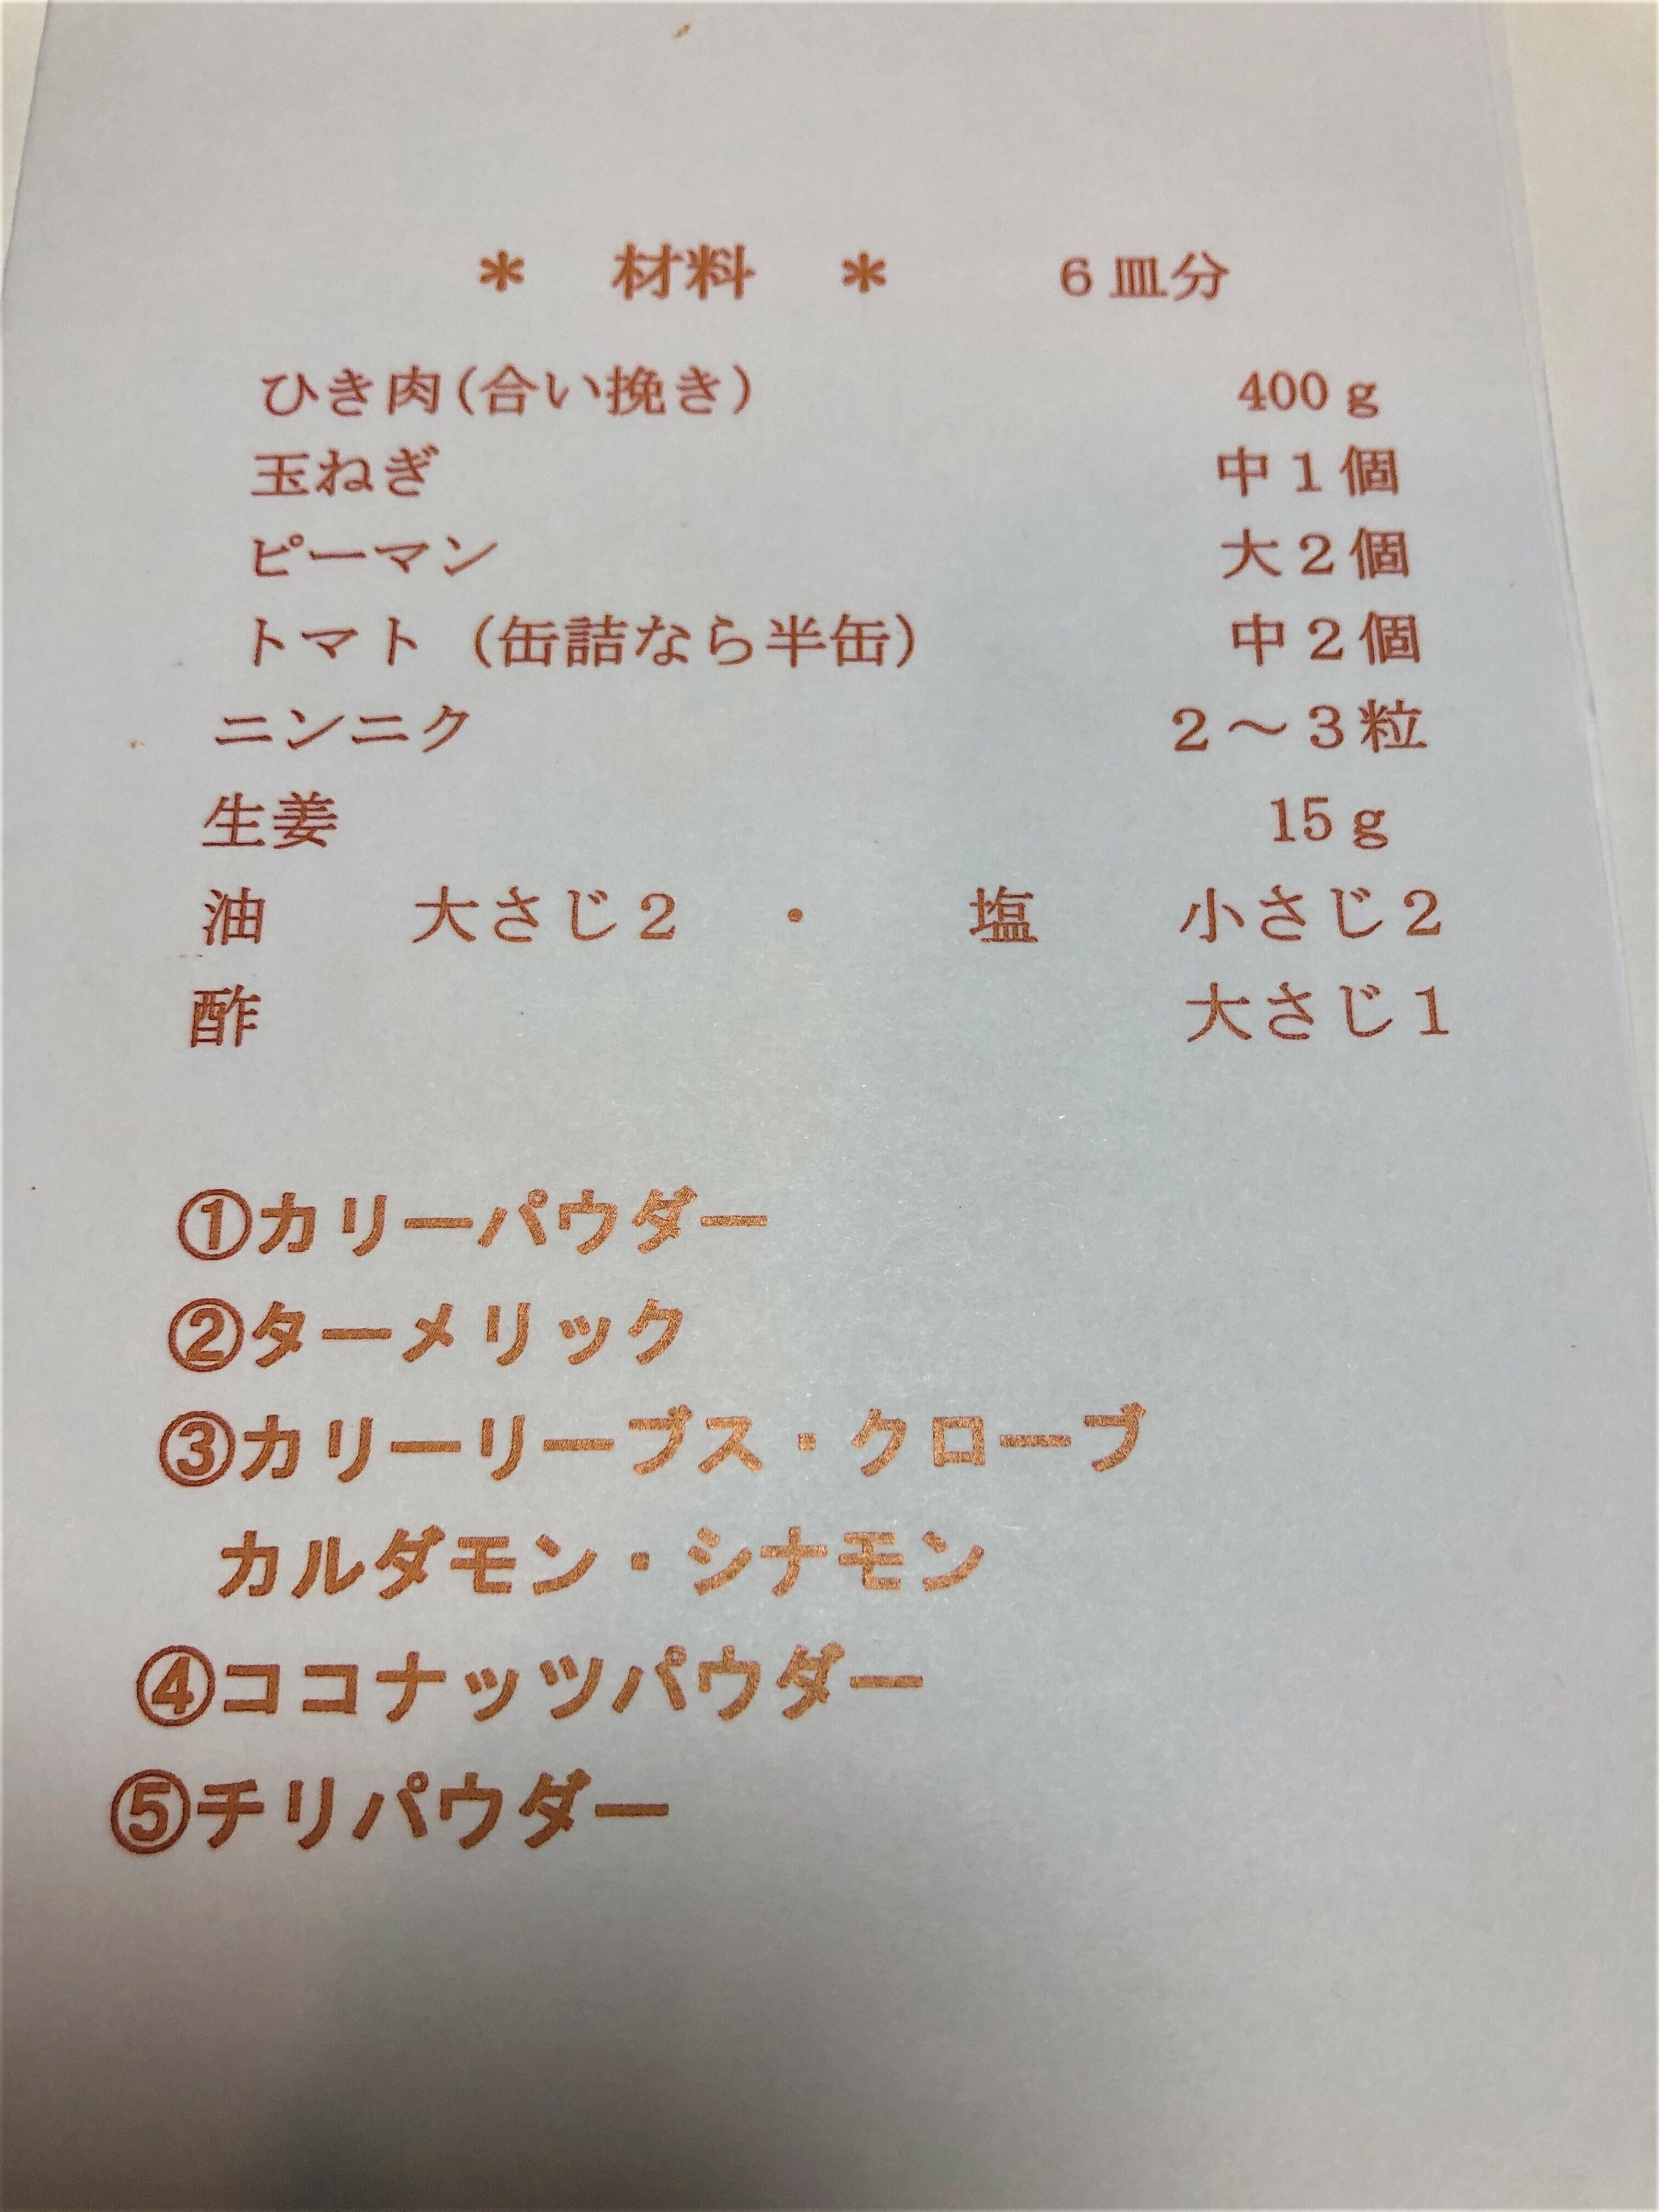 ＊　材料　＊　　６皿分
ひき肉(合い挽き)　400ｇ
玉ねぎ　中１個
ピーマン　大２個
トマト（缶詰なら半缶）　中２個
ニンニク　２～３粒
生姜　15ｇ
油　大さじ２　・　塩　小さじ２
酢　大さじ１
①カリーパウダー
②ターメリック
③カリーリーブス・クローブ
カルダモン・シナモン
④ココナッツパウダー
⑤チリパウダー